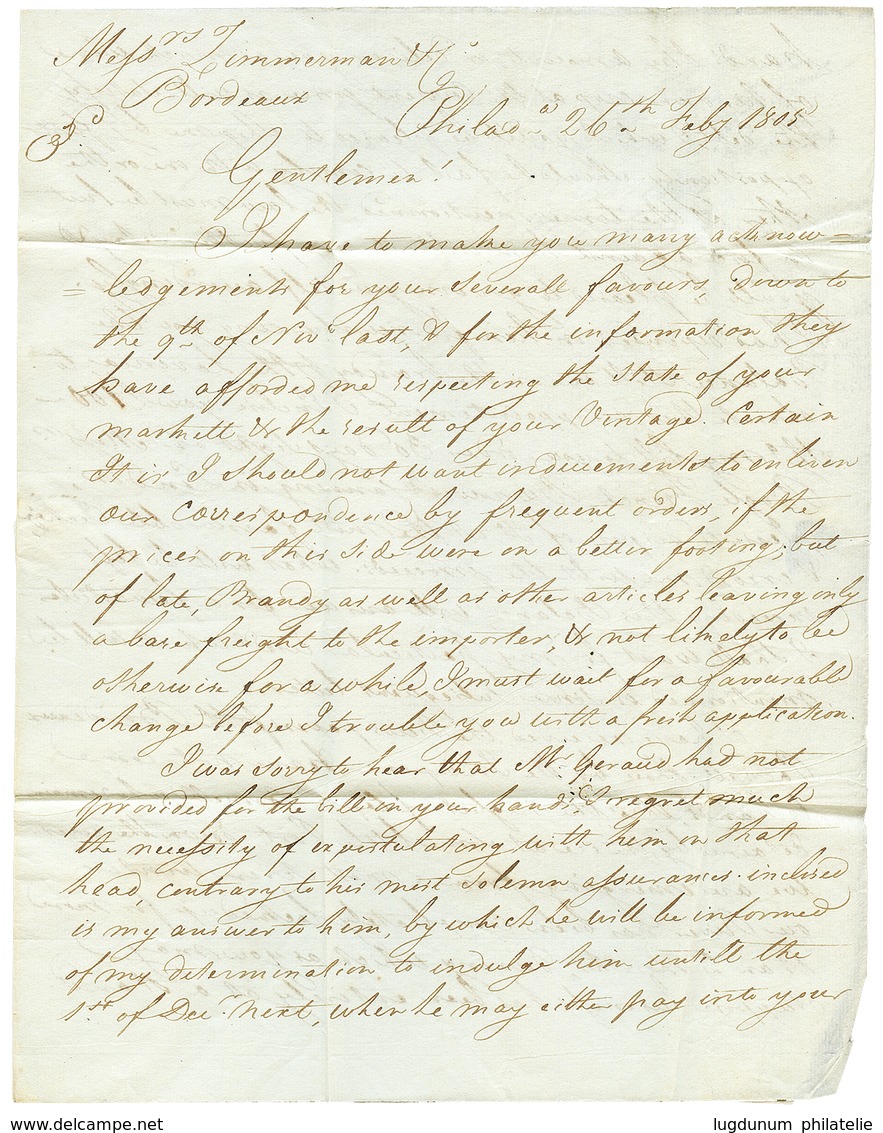 Messrs Zimmerman & Co
Bordeaux
Philada 26th Feby 1805
Gentlemen!
I have to make you many acknow=
=ledgements for your severall favours, down to
the 9th of Novr last, & for the information they
have afforded me respecting the state of your
markett & the result of your Vintage. Certain
It is I should not want inducements to enliven
our correspondence by frequent orders, if the
prices on this side were on a better footing; but
of late, Brandy as well as other articles leaving only
a bare freight to the importer, & not likely to be
otherwise for a while, I must wait for a favourable
change before I trouble you with a fresh application.
I was sorry to hear that Mr. Geraud had not
provided for the bill in your hands; I regret much
the necessity of expostulating with him on that
head, contrary to his most solemn assurances. inclosed
is my answer to him, by which he will be informed
of my determination to indulge him untill the
1st of Decr next, when he may either pay into your
www.delcampe.net
lugdunum philatelie